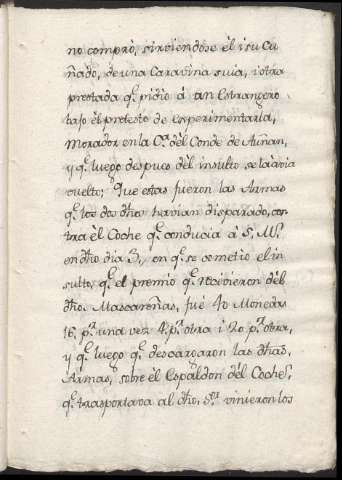 no comprò, sirviendose èl i su Cu
ñado, de una Caravina suia, i otra
prestada q.e pidiò à un Estrangero
bajo èl pretesto de esperimentarla,
morador en la C.a dèl Conde de Auñan,
y q.e luego despues dèl insulto se la avia
buelto; Que estas fueron las Armas
q.e los dos dhõs havian disparado, con
tra èl Coche q.e conducia à S. M.
en dhõ dia 3, en q.e se cometiò el in
sulto, q.e el premio q.e recivieron dèl
dhõ. Mascareñas, fuè 40 Monedas
16 p.r una vez 4 p.r otra i 20 p.r otra,
y q.e luego q.e descargaron las dhãs.
Armas, sobre èl Espaldon dèl Coche,
q.e trasportava al dhõ. S.or vinieron los